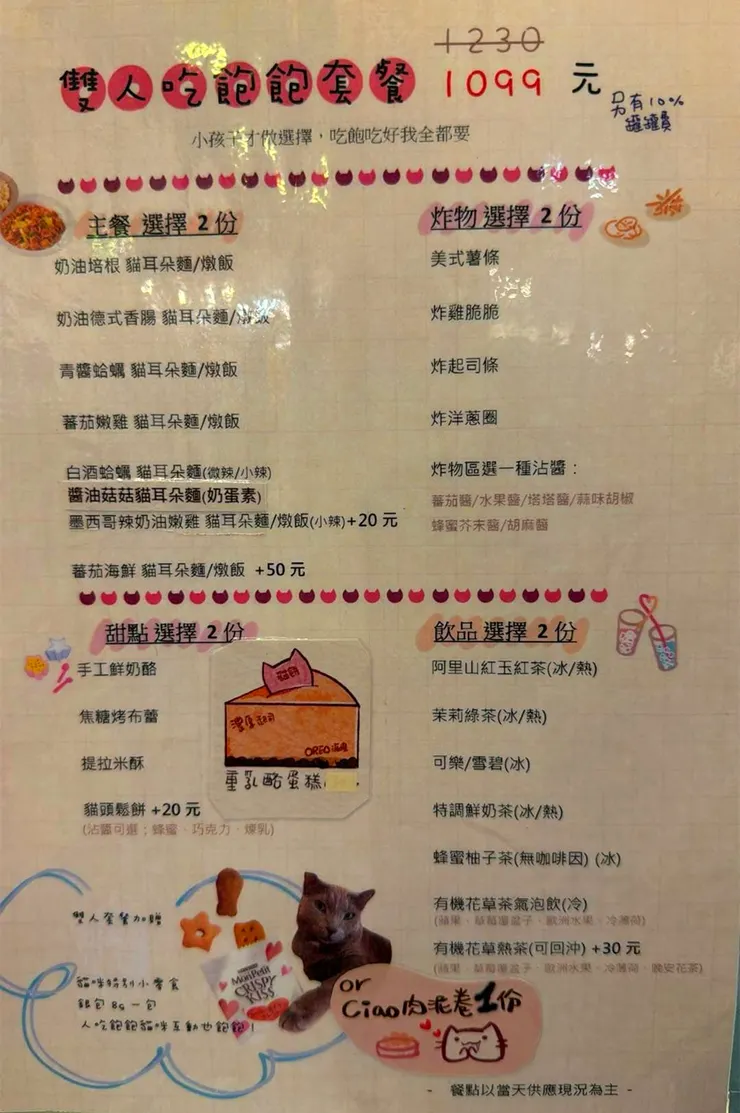 1230
雙人吃飽飽套餐 1099 元
另有10%
罐罐員
小孩子才做選擇,吃飽吃好我全都要
主餐 選擇 2 份
奶油培根 貓耳朵麵/燉飯
奶油德式香腸 貓耳朵麵/燉飯
青醬蛤蠣 貓耳朵麵/燉飯
蕃茄嫩雞 貓耳朵麵/燉飯
白酒蛤蠣 貓耳朵麵(微辣/小辣)
醬油菇菇貓耳朵麵(奶蛋素)
墨西哥辣奶油嫩雞 貓耳朵麵/燉飯(小辣)+20 元
蕃茄海鮮 貓耳朵麵/燉飯 +50 元
炸物 選擇 2 份
炸
美式薯條
炸雞脆脆
炸起司條
炸洋蔥圈
炸物區選一種沾醬:
蕃茄醬/水果醬/塔塔醬/蒜味胡椒
蜂蜜芥末醬/胡麻醬
甜點 選擇 2 份
手工鮮奶酪
焦糖烤布蕾
提拉米酥
貓頭鬆餅 +20 元
(沾醬可選:蜂蜜、巧克力、煉乳)
濃厚起司
OREO
重乳酪蛋糕
飲品 選擇 2 份
阿里山紅玉紅茶(冰/熱)
茉莉綠茶(冰/熱)
可樂/雪碧(冰)
特調鮮奶茶(冰/熱)
蜂蜜柚子茶(無咖啡因) (冰)
有機花草茶氣泡飲(冷)
(蘋果、草莓覆盆子、歐洲水果、冷薄荷)
有機花草熱茶(可回沖) +30 元
(蘋果、草莓覆盆子、歐洲水果、冷薄荷、晚安花茶)
雙人套餐加贈
貓咪特別小零食
銀包 8g 一包
人吃飽飽貓咪互動也飽飽!
MonPetit
CRISPY
KISS
or
Ciao肉泥卷1份
- 餐點以當天供應現況為主 -